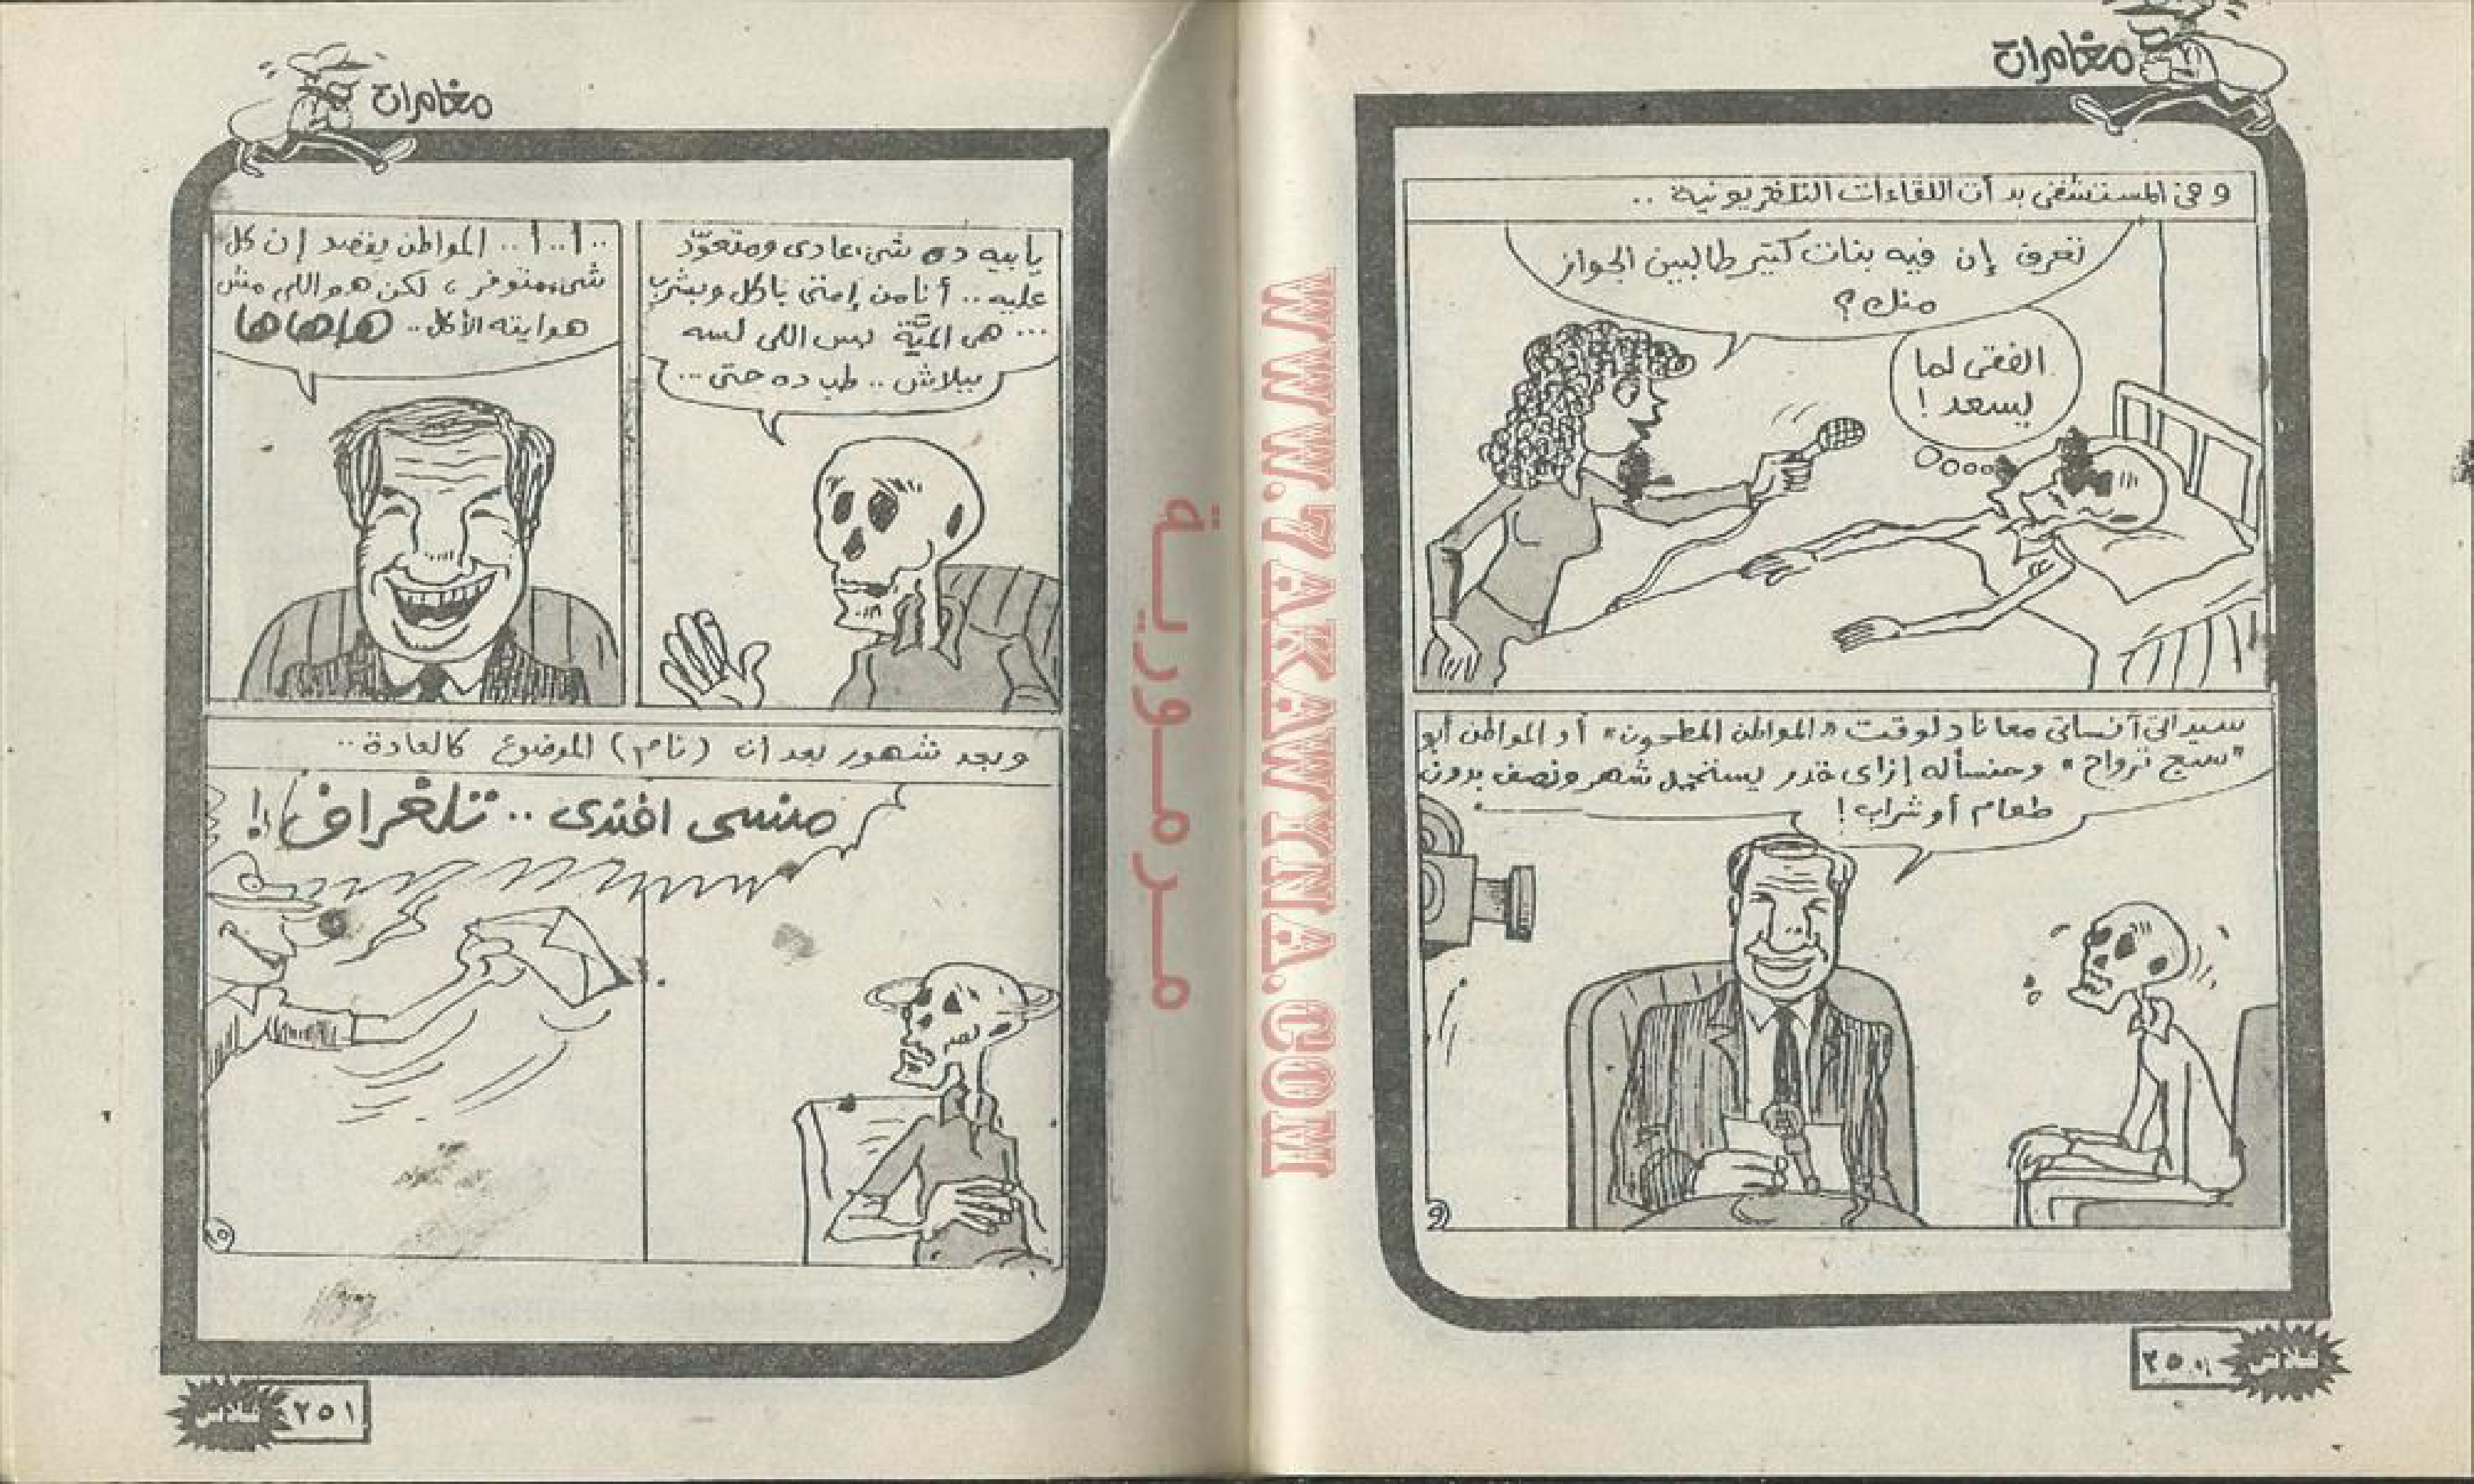 مغامرات
وفى المستشفى بدأت اللقاءات التلفزيونية ..
تعرف إن فيه بنات كتير طالبين الجواز
منك؟
الفقى لما
يسعد !
سيداتى آنساتى معانا دلوقت "المواطن المطحون" أو المواطن أبو
"سبع ترواح" وحنسأله إزاى قدر يستحمل شهر ونصف بدون
طعام أو شراب !
٩
٢٥٠
فلاش
مغامرات
يابيه ده شىء عادى ومتعوّد
عليه .. أنا من إمتى باكل وبشرب
... هى الميّة بس اللى لسه
ببلاش .. طب ده حتى ...
..ا..ا.. المواطن يقصد إن كل
شىء متوفر ، لكن هو اللى مش
هوايته الأكل .. هاهاها
وبعد شهور بعد أن (نام) الموضوع كالعادة ..
منسى افندى .. تلغراف !!
١٠
٢٥١
فلاش
WWW.7AKAWINA.COM
مرمورية